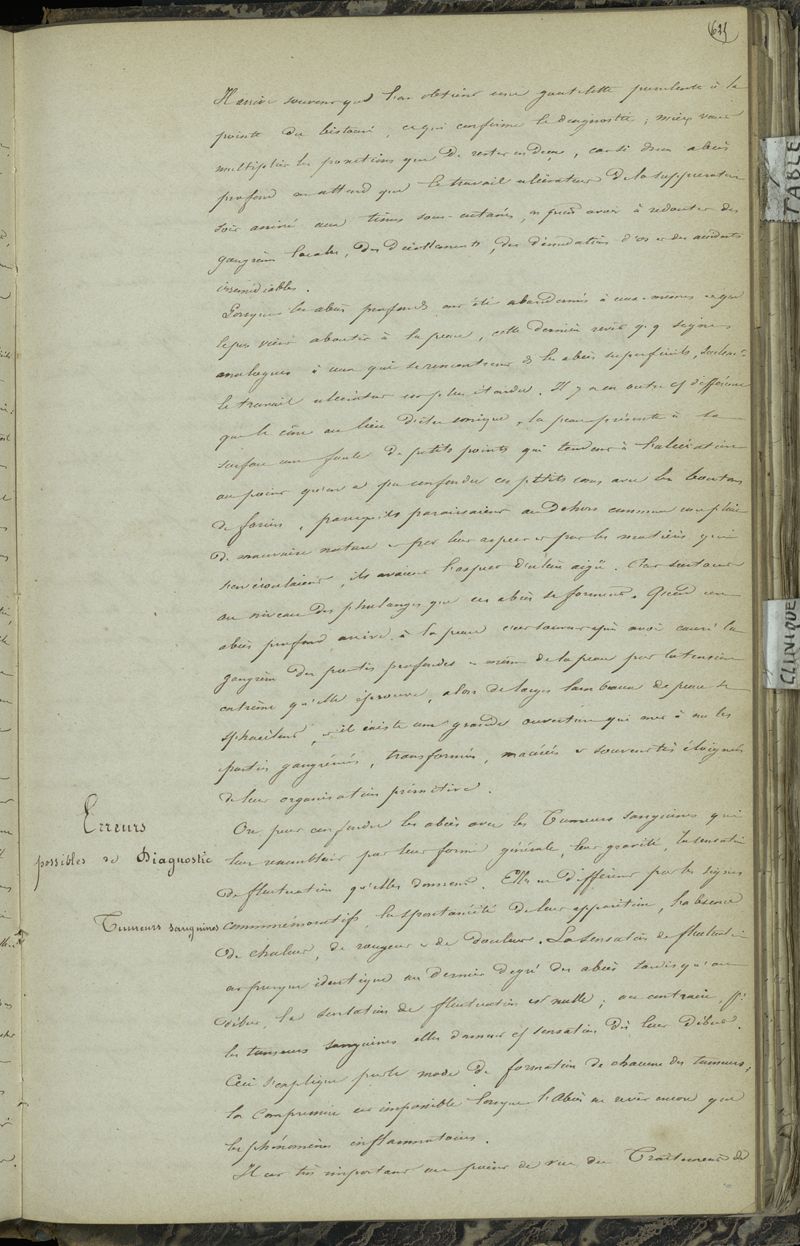 Il arrive souvent que l'on obtient une gouttelette purulente à la
pointe du bistouri, ce qui confirme le diagnostic ; mieux vaut
multiplier les ponctions que de rester en deça, car si dans abcès
profond on attend que le travail ulcérateur de la suppuration
soit arrivé aux tissus sous-cutanés, on peut avoir à redouter des
gangrènes locales, des décollements, des dénudations d'os et des accidents
irrémédiables.
Lorsque les abcès profonds ont été abandonnés à eux-mêmes et que
le pus vient aboutir à la peau, cette dernière revêt signes
analogues à ceux qui se rencontrent ds les abcès superficiels, seulemt
le travail ulcérateur est plus étendu. Il y a en outre cette différence
que le cône au lieu d'être unique, la peau présente à sa
surface une foule de petits points qui tendent à l'ulcération
au point qu'on a pu confondre ces petits cônes avec les boutons
de farcin, parce qu'ils paraissaient au dehors comme une plaie
de mauvaise nature et par leur aspect et par les matières qui
s'en écoulaient, ils avaient l'aspect d'ulcère aigü. C'est surtout
au niveau des phalanges que ces abcès se forment. Quand un
abcès profond arrive à la peau c'est toujours après avoir causé la
gangrène des parties profondes et même de la peau par la tension
extrême qu'elle éprouve, alors de larges lambeaux de peau se
sphacèlent, et il existe une grande ouverture qui met à nu les
parties gangrénées, transformées, macérées et souvent très éloignées
de leur organisation primitive.
Erreurs
possibles de Diagnostic
On peut confondre les abcès avec les Tumeurs sanguines qui
leur ressemblent par leur forme générale, leur gravité, la sensation
de fluctuation qu'elles donnent. Elles en diffèrent par les signes
Tumeurs sanguines
commémoratifs, la spontanéité de leur apparition, l'absence
de chaleur, de rougeur et de douleur. La sensation de fluctuation
est presque identique au dernier degré des abcès tandis qu'au
début, la sensation de fluctuation est nulle ; au contraire,
les tumeurs sanguines elles donnent cette sensation dès leur début.
Ceci s'explique par le mode de formation de chacune des tumeurs,
la compression est impossible lorsque l'Abcès ne revêt encore que
les phénomènes inflammatoires.
Il est très important au point de vue du Traitement de
TABLE
CLINIQUE